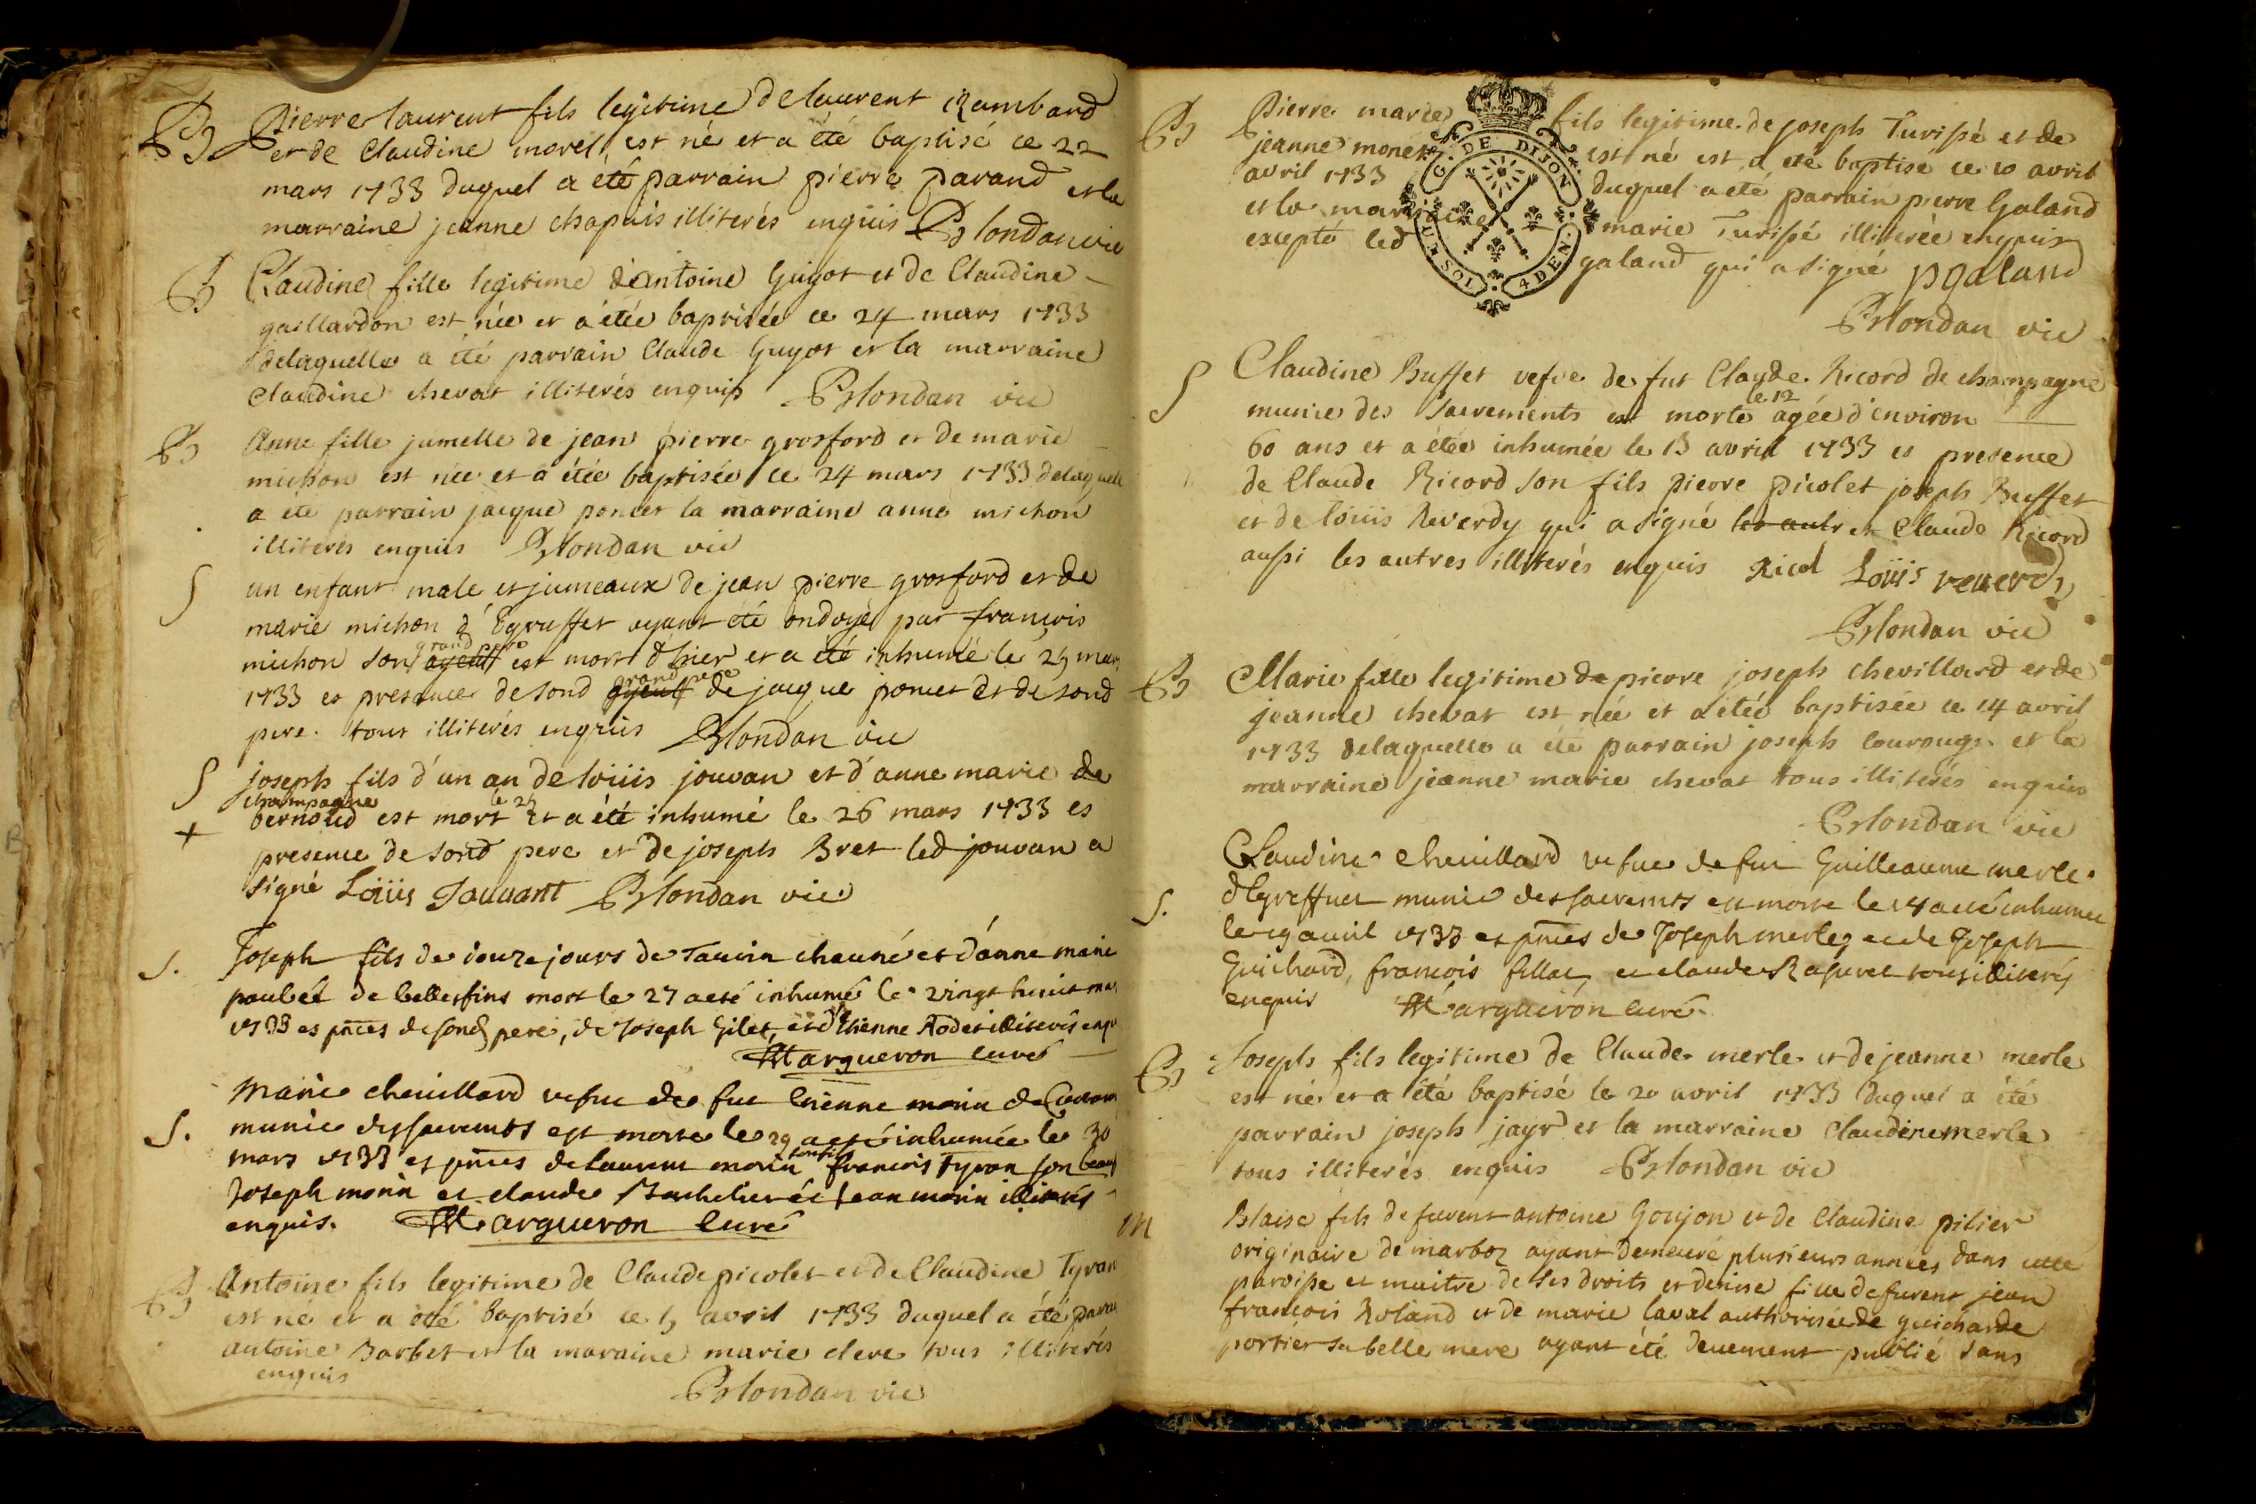 B Pierre laurent fils legitime de laurent Rambard
et de Claudine morel, est né et a été baptisé ce 22
mars 1733 duquel a été parrain pierre Parand et la
marraine jeanne chapuis illiterés enquis Blondan vic
B Claudine fille legitime d'antoine Guyot et de Claudine
gaillardon est née et a étée baptisée ce 24 mars 1733
delaquelle a été parrain Claude Guyot et la marraine
Claudine chevat illiterés enquis Blondan vic
B Anne fille jumelle de jean pierre grosford et de marie
michon est née et a étée baptisée ce 24 mars 1733 delaquelle
a été parrain jacque poncet la marraine anne michon
illiterés enquis Blondan vic
S un enfant male et jumeaux de jean pierre grosford et de
marie michon d'Egreffet ayant été ondoyé par francois
michon son grand pere est mort d'hier et a été inhumé le 25 mars
1733 es presence de sond grand pere de jacque poncet et de sond
pere. tous illiterés enquis Blondan vic
S joseph fils d'un an de loüis jouvan et d'anne marie de
champagne
+ bernoud est mort le 25 et a été inhumé le 26 mars 1733 es
presence de sond pere et de joseph Bret led jouvan a
signé Loüis Jouuant Blondan vic
S. Joseph fils de douze jours de chauné et d'anne marie
de bellesfins mort le 27 a eté inhumé le vingt huict mars
1733 es pnces de sond pere, de Joseph Gilet, et d'Etienne Rodet illiterés enquis
Margueron curé
Marie cheuillard vefue de fue Etienne morin de
S. munie des sacremts est morte le 29 a eté inhumée le 30
mars 1733 es pnces de laurent morin son fils francois Tyron son beau
Joseph morin et claude Bachelier et jean morin illiterés
enquis. Margueron curé
B Antoine fils legitime de Claude picolet et de Claudine Tyran
est né et a été baptisé ce 5 avril 1733 duquel a été parrain
antoine Barbet et la maraine marie clere tous illiterés
enquis
Blondan vic
B Pierre marie fils legitime de joseph Turissé et de
jeanne monet est né est a eté baptisé ce 10 avril
avril 1733 duquel a été parrain pierre Galand
et la marraine marie Turissé illiterée enquis
excepté led galand qui a signé pgaland
G. DE DIJON
4 DEN.
Blondan vic
S Claudine Buffet vefve de fut Claude Ricord de champagne
munie des sacrements est morte le 12 agée d'environ
60 ans et a étée inhumée le 13 avril 1733 es presence
de Claude Ricord son fils pierre picolet joseph Buffet
et de loüis Reverdy qui a signé les autr et Claude Ricord
aussi les autres illiterés enquis Ricd Loüis reuerdy
Blondan vic
B Marie fille legitime de pierre joseph chevillard et de
jeanne chevat est née et a étée baptisée ce 14 avril
1733 delaquelle a été parrain joseph et la
marraine jeanne marie chevat tous illiterés enquis
Blondan vic
Claudine cheuillard vefue de fue Guilleaume merle
S. d'Egreffuet munie des sacremts est morte le 14 a eté inhumée
le auril 1733 es pnces de Joseph merle, et de Joseph
Guichard, francois fillat, et claude tous illiterés
enquis Margueron curé
B Joseph fils legitime de Claude merle et de jeanne merle
est né et a été baptisé le 20 avril 1733 duquel a été
parrain joseph jayr et la marraine Claudine merle
tous illiterés enquis Blondan vic
M Blaise fils de furent antoine Goujon et de Claudine pilier
originaire de marboz ayant demeuré plusieurs années dans cette
paroisse et maitre de ses droits et denise fille de furent jean
francois Roland et de marie laval authorisée de guicharde
portier sa belle mere ayant été deuement publié sans